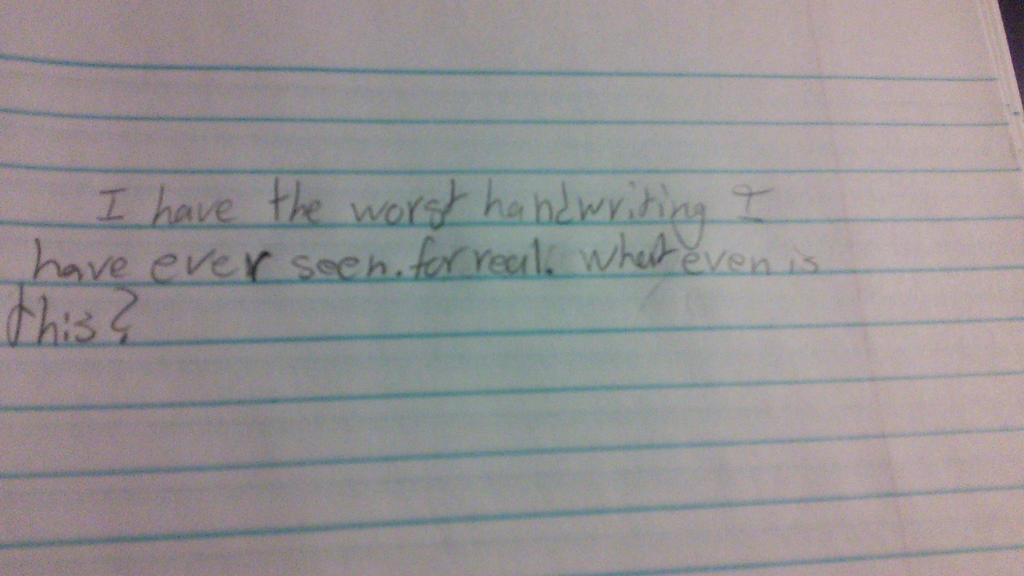 I have the worst handwriting I
have ever seen. for real. What even is
this?